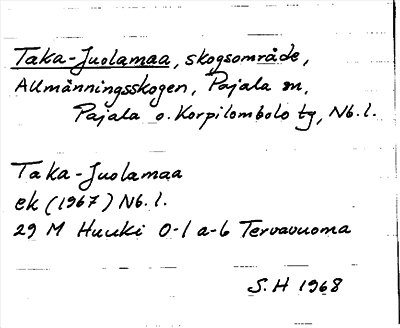 Taka-Juolamaa, skogsområde,
Allmänningsskogen, Pajala sn,
Pajala o. Korpilombolo tg, Nb. l.
Taka-Juolamaa
ek (1967) Nb. l.
29 M Huuki 0-1 a-b Tervavuoma
S.H 1968